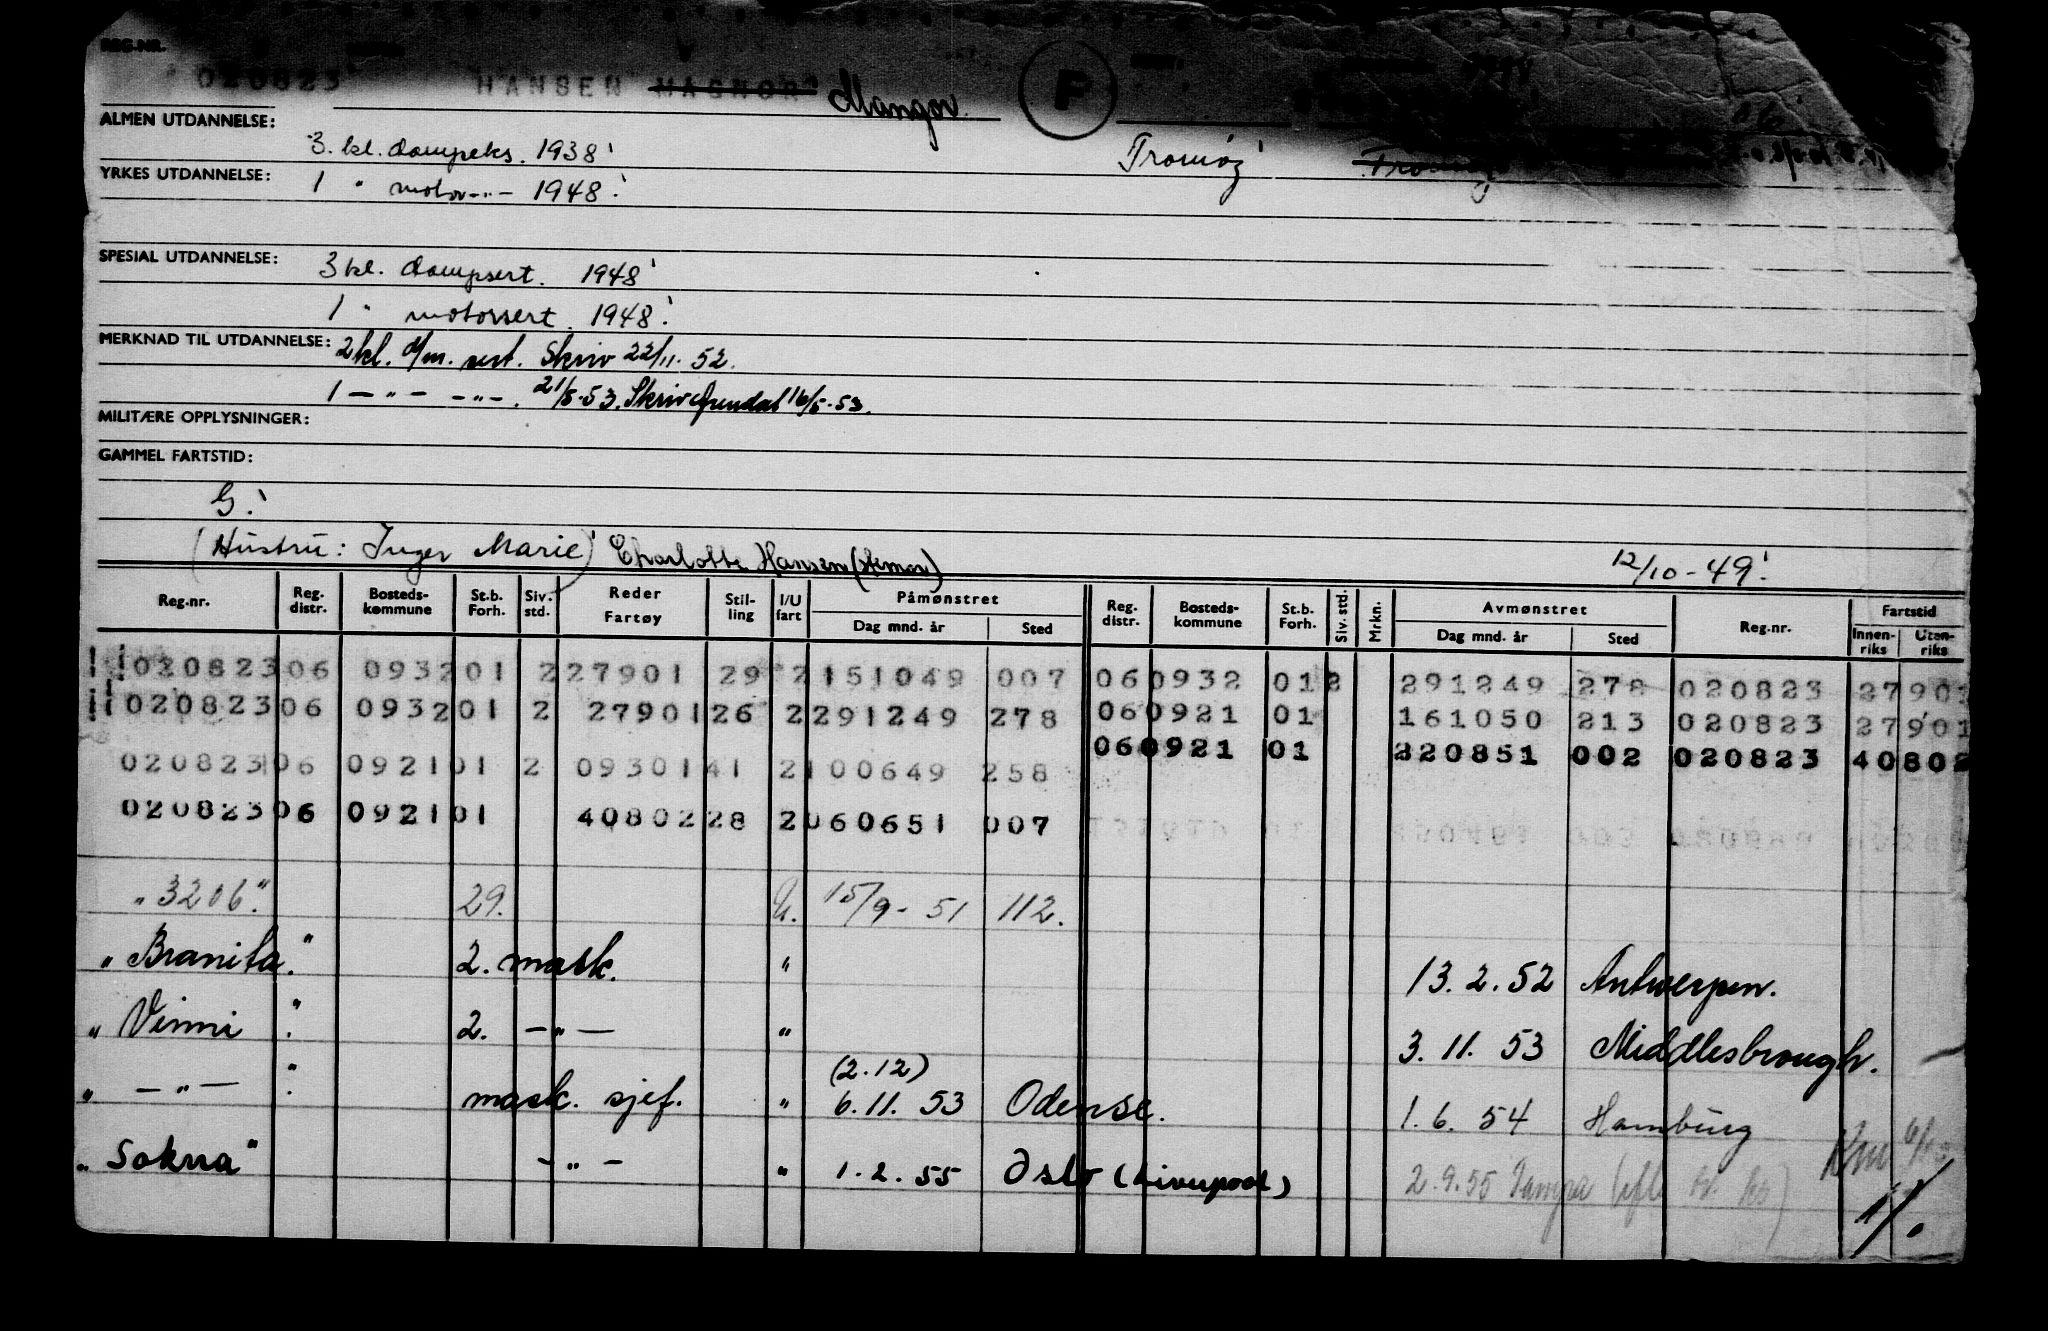 REG.NR.
020823 HANSEN MAGNOR Mangor F
ALMEN UTDANNELSE:
3. kl. dampeks. 1938! Tromøy Tromøy
YRKES UTDANNELSE: 1 " motor-"- 1948!
SPESIAL UTDANNELSE: 3 kl. dampsert. 1948!
1 " motorsert. 1948!
MERKNAD TIL UTDANNELSE: 2 kl. d/m. sert. Skriv 22/11. 52.
1 - " - - " - . 21/5.53. Skriv Arendal 16/5.53.
MILITÆRE OPPLYSNINGER:
GAMMEL FARTSTID:
G!
(Hustru: Inger Marie) Charlotte Hansen 12/10-49!
Reg.nr. Reg. distr. Bosteds-kommune St.b. Forh. Siv. std. Reder Fartøy Stil-ling I/U fart Påmønstret Dag mnd. år Sted Reg. distr. Bosteds-kommune St.b. Forh. Siv. std. Mrkn. Avmønstret Dag mnd. år Sted Reg.nr. Fartstid Innen-riks Uten-riks
020823 06 0932 01 2 27901 29 2 151049 007 06 0932 01 2 291249 278 020823 27901
020823 06 0932 01 2 27901 26 2 291249 278 06 0921 01 161050 213 020823 27901
06 0921 01 220851 002 020823 40802
020823 06 0921 01 2 09301 41 2 100649 258
020823 06 0921 01 40802 28 2 060651 007
"3206." 29. U. 15/9-51 112.
"Branita." 2. mask. " 13.2.52 Antwerpen.
"Vinni." 2. -"- " 3.11.53 Middlesbrough.
" -"- ." mask. sjef. " (2.12) 6.11.53 Odense. 1.6.54 Hamburg
"Sokna" -"- " 1.2.55 Oslo (Liverpool) 2.9.55 Tampa
1/.